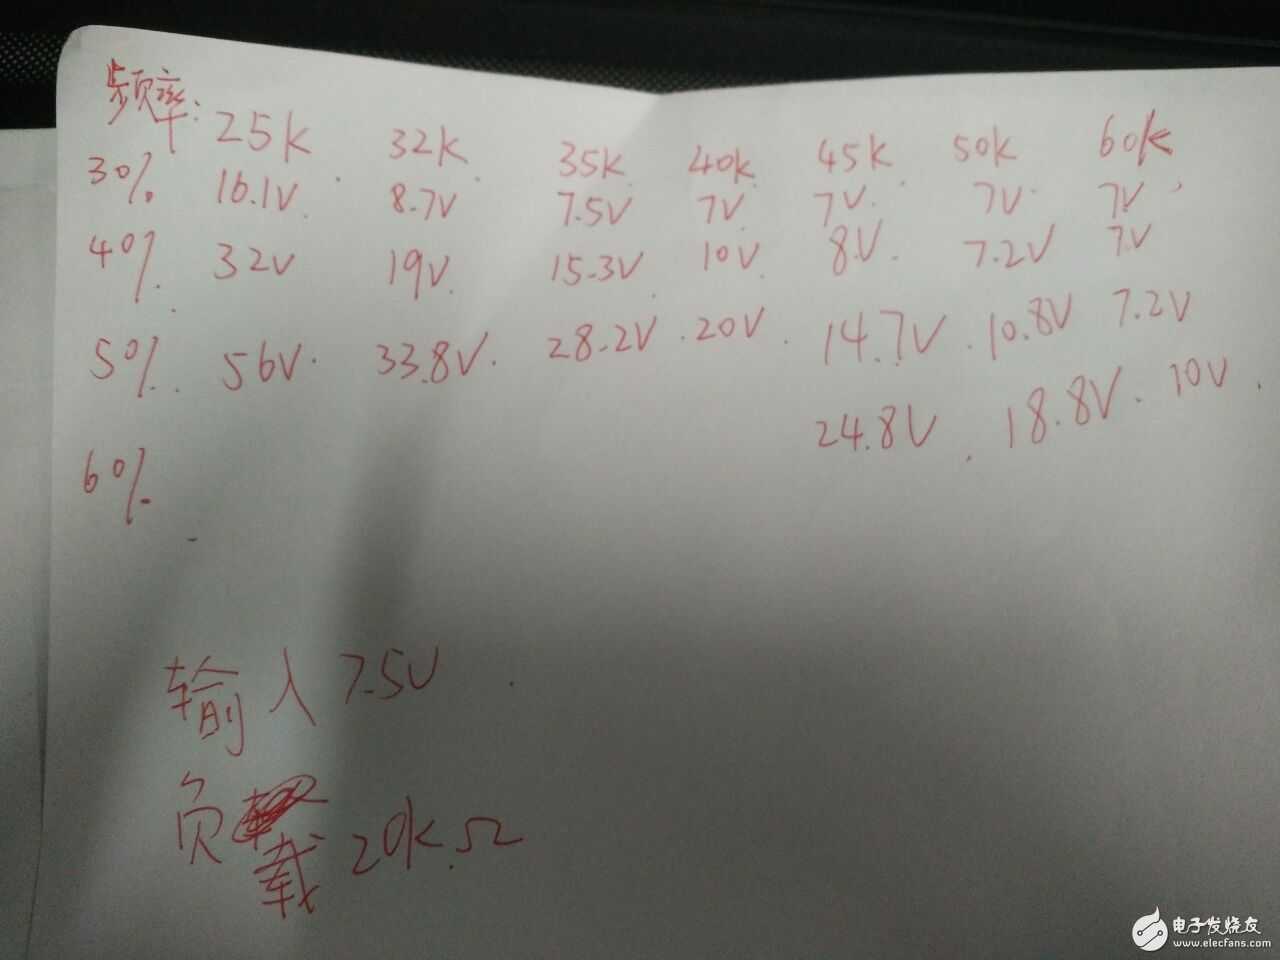 频率: 25k 32k 35k 40k 45k 50k 60k
30% 16.1V 8.7V 7.5V 7V 7V 7V 7V
40% 32V 19V 15.3V 10V 8V 7.2V 7V
50% 56V 33.8V 28.2V 20V 14.7V 10.8V 7.2V
60% 24.8V 18.8V 10V
输入 7.5V
负载 20kΩ
电子发烧友
www.elecfans.com